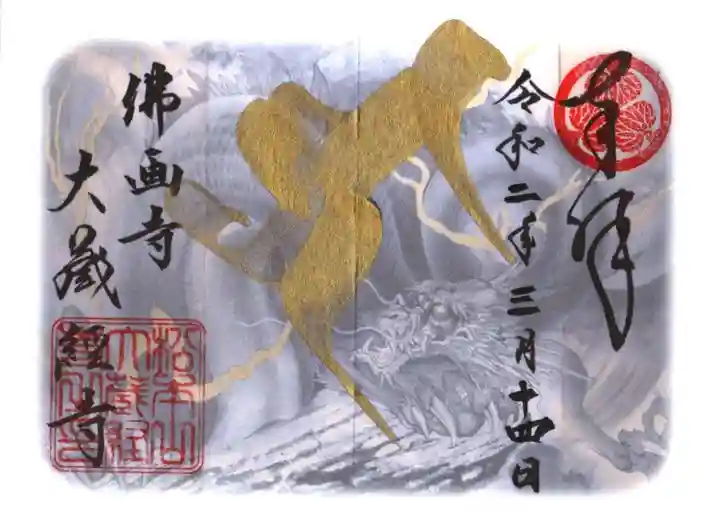 奉拝
令和二年三月十四日
佛画寺
大蔵経寺
松本山
大蔵経
寺之印